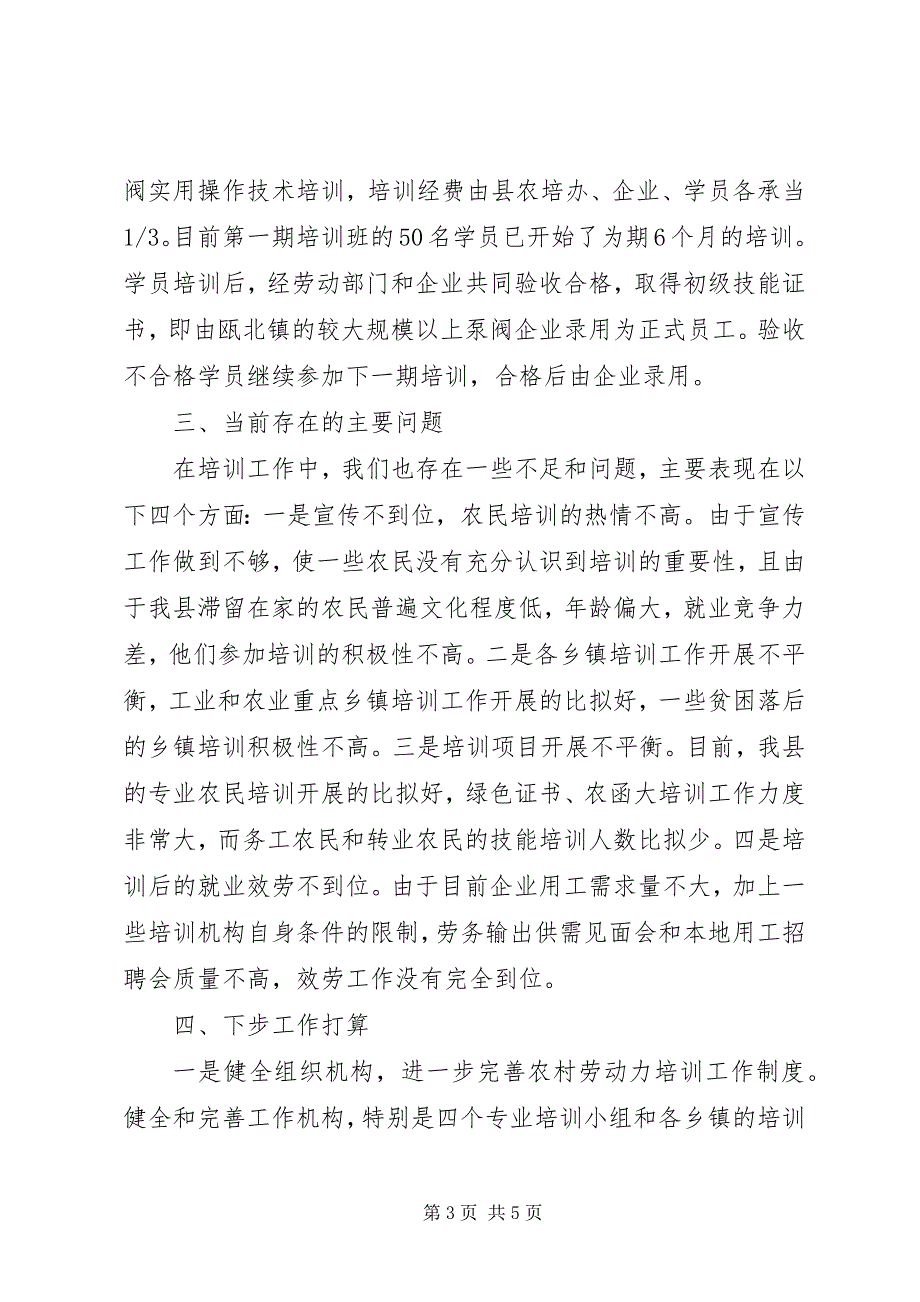 阀实用操作技术培训，培训经费由县农培办、企业、学员各承当
1/3。目前第一期培训班的50名学员已开始了为期6个月的培训。
学员培训后，经劳动部门和企业共同验收合格，取得初级技能证
书，即由瓯北镇的较大规模以上泵阀企业录用为正式员工。验收
不合格学员继续参加下一期培训，合格后由企业录用。
三、当前存在的主要问题
在培训工作中，我们也存在一些不足和问题，主要表现在以
下四个方面：一是宣传不到位，农民培训的热情不高。由于宣传
工作做到不够，使一些农民没有充分认识到培训的重要性，且由
于我县滞留在家的农民普遍文化程度低，年龄偏大，就业竞争力
差，他们参加培训的积极性不高。二是各乡镇培训工作开展不平
衡，工业和农业重点乡镇培训工作开展的比拟好，一些贫困落后
的乡镇培训积极性不高。三是培训项目开展不平衡。目前，我县
的专业农民培训开展的比拟好，绿色证书、农函大培训工作力度
非常大，而务工农民和转业农民的技能培训人数比拟少。四是培
训后的就业效劳不到位。由于目前企业用工需求量不大，加上一
些培训机构自身条件的限制，劳务输出供需见面会和本地用工招
聘会质量不高，效劳工作没有完全到位。
四、下步工作打算
一是健全组织机构，进一步完善农村劳动力培训工作制度。
健全和完善工作机构，特别是四个专业培训小组和各乡镇的培训
第3页 共5页